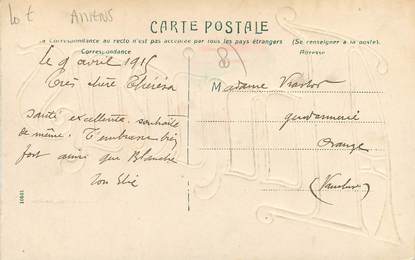 Lot Amiens
CARTE POSTALE
la Correspondance au recto n'est pas acceptée par tous les pays étrangers (Se renseigner à la poste).
Correspondance
Adresse
le 9 avril 1915
Très chère Thérésa
Santé excellente. souhaite
de même. T'embrasse bien
fort ainsi que Blanche
Ton Elie
Madame
gendarmerie
Orange
(Vaucluse)